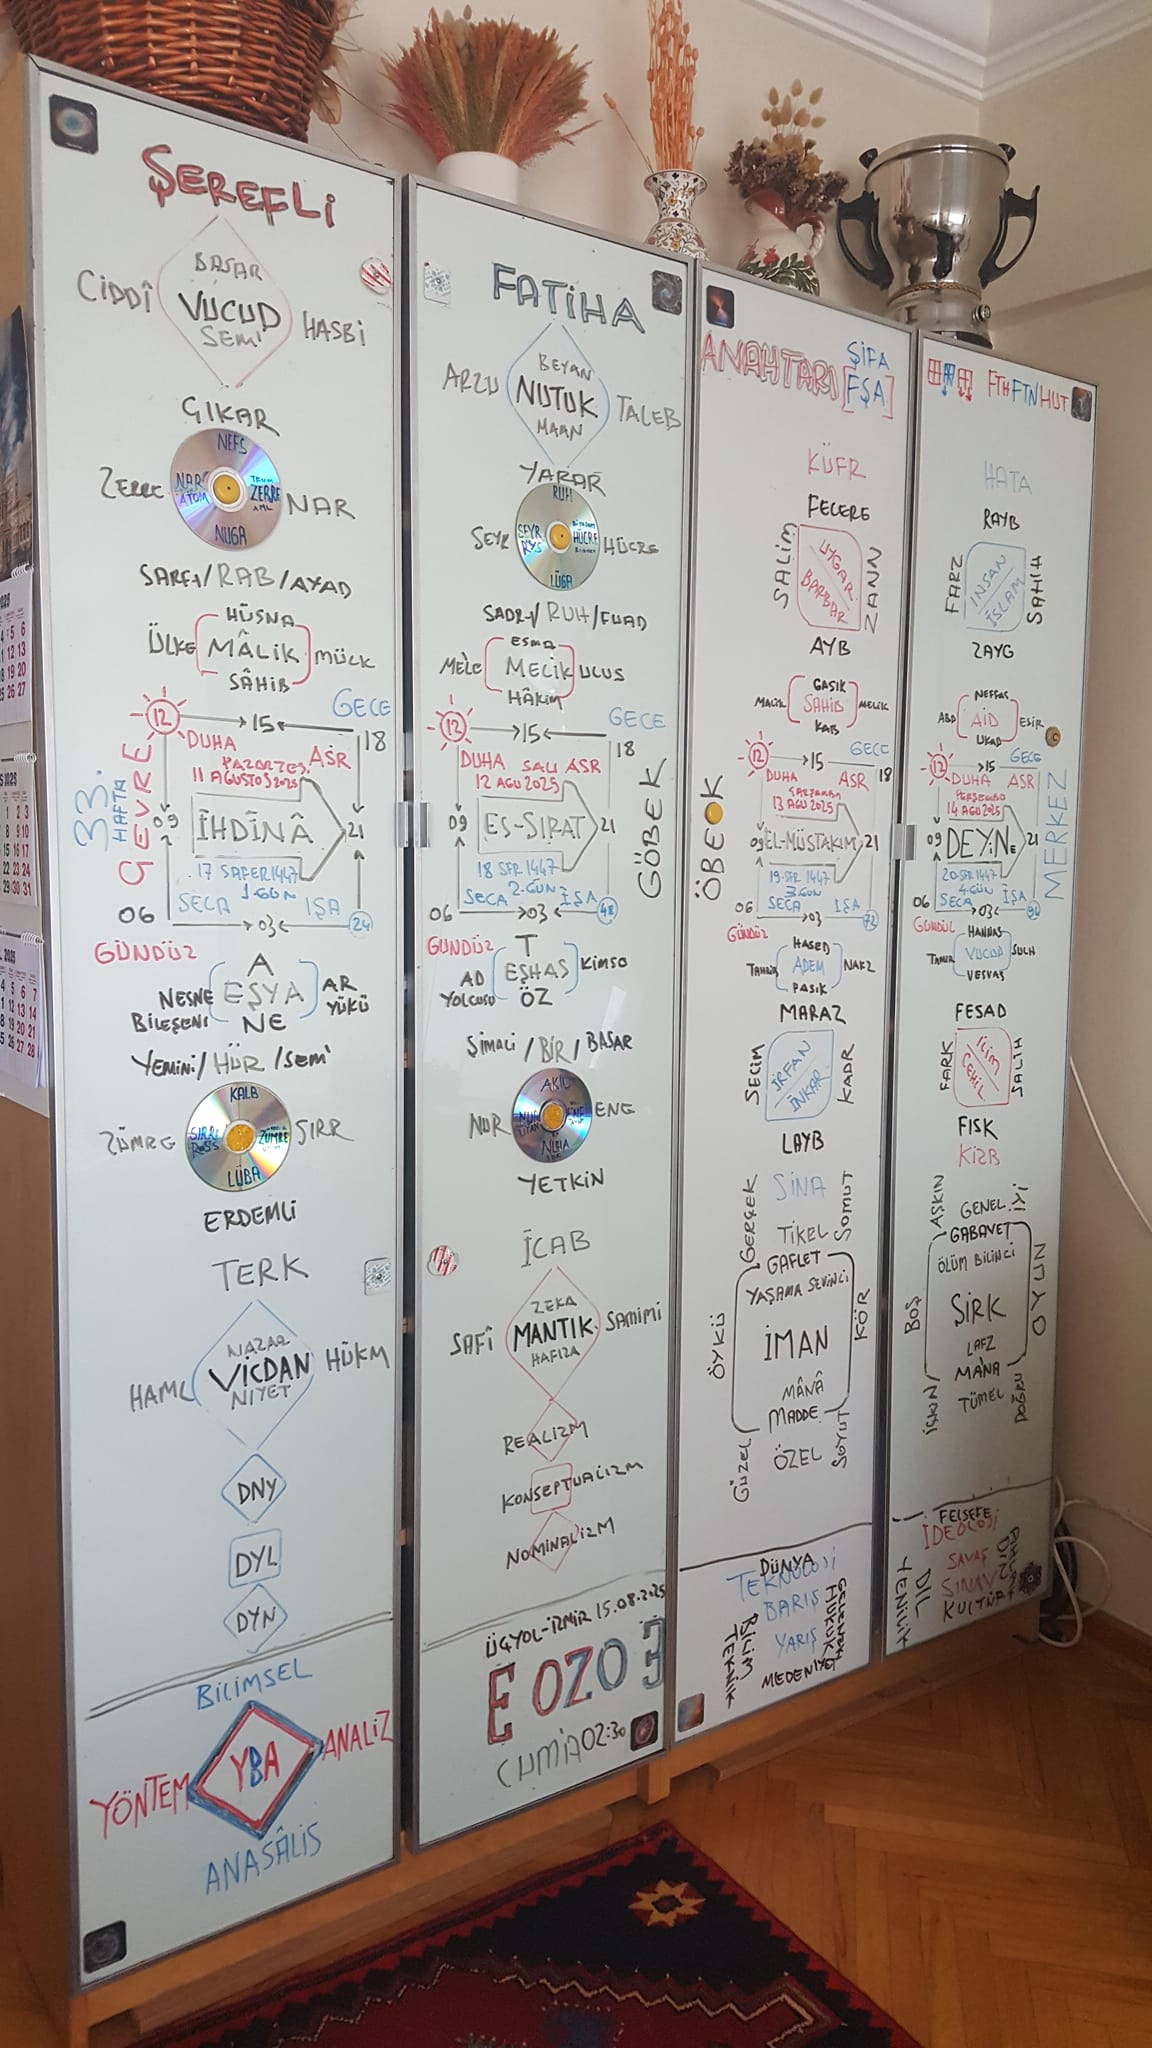 ŞEREFLİ
BASAR
CİDDÎ VUCUD HASBİ
SEMİ'
ÇIKAR
NEFS
ZERRE NAR ATOM ZERRE NAR
NUGA
SARFI/RAB/AYAD
HÜSNA
ÜLKE MÂLİK MÜLK
SÂHİB
12 15 GECE
18
DUHA ASR
PAZARTESİ
11 AGUSTOS 2025
33. HAFTA
ÇEVRE
09 İHDİNÂ 21
17 SAFER 1447
1.GÜN
SECA İŞA
06 03 24
GÜNDÜZ
A
NESNE EŞYA AR
BİLEŞENİ NE YÜKÜ
YEMİNİ/HÜR/SEMİ'
KALB
ZÜMRE SIRR ZÜMRE SIRR
LÜBA
ERDEMLİ
TERK
NAZAR
HAML VİCDAN HÜKM
NİYET
DNY
DYL
DYN
BİLİMSEL
YÖNTEM YDBA ANALİZ
ANASÂLİS
FATİHA
BEYAN
ARZU NUTUK TALEB
MAAN
YARAR
RUH
SEYR SEYR HÜCRE HÜCRE
LÜGA
SADRI/RUH/FUAD
ESMA
MELE MELİK ULUS
HÂKİM
12 15 GECE
18
DUHA SALI ASR
12 AGU 2025
09 ES-SIRAT 21
18 SFR 1447
SECA 2.GÜN İŞA
06 03 48
GÖBEK
GÜNDÜZ T
AD EŞHAS KİMSE
YOLCUSU ÖZ
ŞİMALİ/BİR/BASAR
AKIL
NUR NUR ENE ENE
NUHA
YETKİN
İCAB
ZEKA
SAFÎ MANTIK SAMİMİ
HAFIZA
REALİZM
KONSEPTUALİZM
NOMİNALİZM
ÜÇYOL-İZMİR 15.08.2025
EOZOE
CUMA 02:30
ANAHTARI ŞİFA
[FŞA]
KÜFR
FECERE
SALİM UYGAR BARBAR ZANN
AYB
GASIK
MALİK SAHİB MELİK
KAB
12 15 GECE
18
DUHA ASR
ÇARŞAMBA
13 AGU 2025
ÖBEK
09 EL-MÜSTAKIM 21
19 SFR 1447
3.GÜN
SECA İŞA
06 03 72
GÜNDÜZ
HASED
TAHRİB ADEM NAKZ
FASIK
MARAZ
SECİM İRFAN İNKAR KADR
LAYB
SİNA
GERÇEK TİKEL SOMUT
GAFLET
YAŞAMA SEVİNCİ
ÖYKÜ İMAN KÖR
MÂNÂ
MADDE
GÜZEL ÖZEL SOYUT
DÜNYA
TEKNOLOJİ
BARIŞ
YARIŞ
MEDENİYET
BİLİM
TEKNİK
GELENEK
HUKUK
FTHFTNHUT
HATA
RAYB
FARZ İNSAN İSLAM SAHİH
ZAYG
NEFFAS
ABD AİD ESİR
UKAD
12 15 GECE
DUHA ASR
PERŞEMBE
14 AGU 2025
09 DEYNE 21
20 SFR 1447
4.GÜN
SECA İŞA
06 03 96
MERKEZ
GÜNDÜZ
HANNAS
TAMİR VUCUD SULH
VESVAS
FESAD
FARK İLİM CEHİL SALİH
FISK
KİZB
AŞKIN GENEL İYİ
GABAVET
ÖLÜM BİLİNCİ
BOŞ ŞİRK OYUN
LAFZ
MANA
İÇKİN TÜMEL DOĞRU
FELSEFE
İDEOLOJİ
SAVAŞ
SINAV
KÜLTÜR
DİL
YENİLİK
AHLAK
DİN